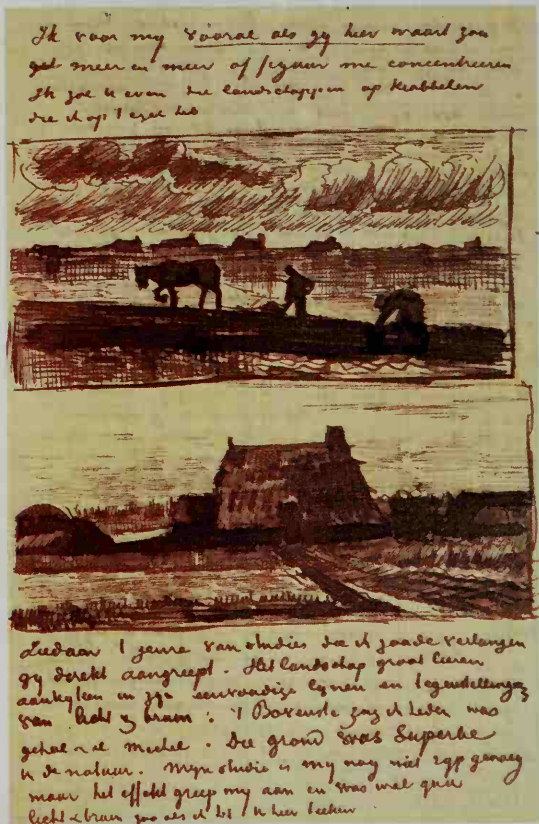 Ik voor my vooral als gy hier waart zou
met meer en meer of figuur me concentreeren
Ik zal U even die landschappen op krabbelen
die ik op 't ezel heb
Ziedaar 't genre van studies die ik zoude verlangen
gy direkt aangreept. Het landschap groot leeren
aankyken in zyn eenvoudige lynen en tegenstellingen
van licht & bruin. 't Bovenste zag ik heden was
geheel Michel. Die grond was Superbe
in de natuur. Myn studie is my nog niet ryp genoeg
maar het effekt greep my aan en was wel qua
licht & bruin zoo als ik het U hier teeken